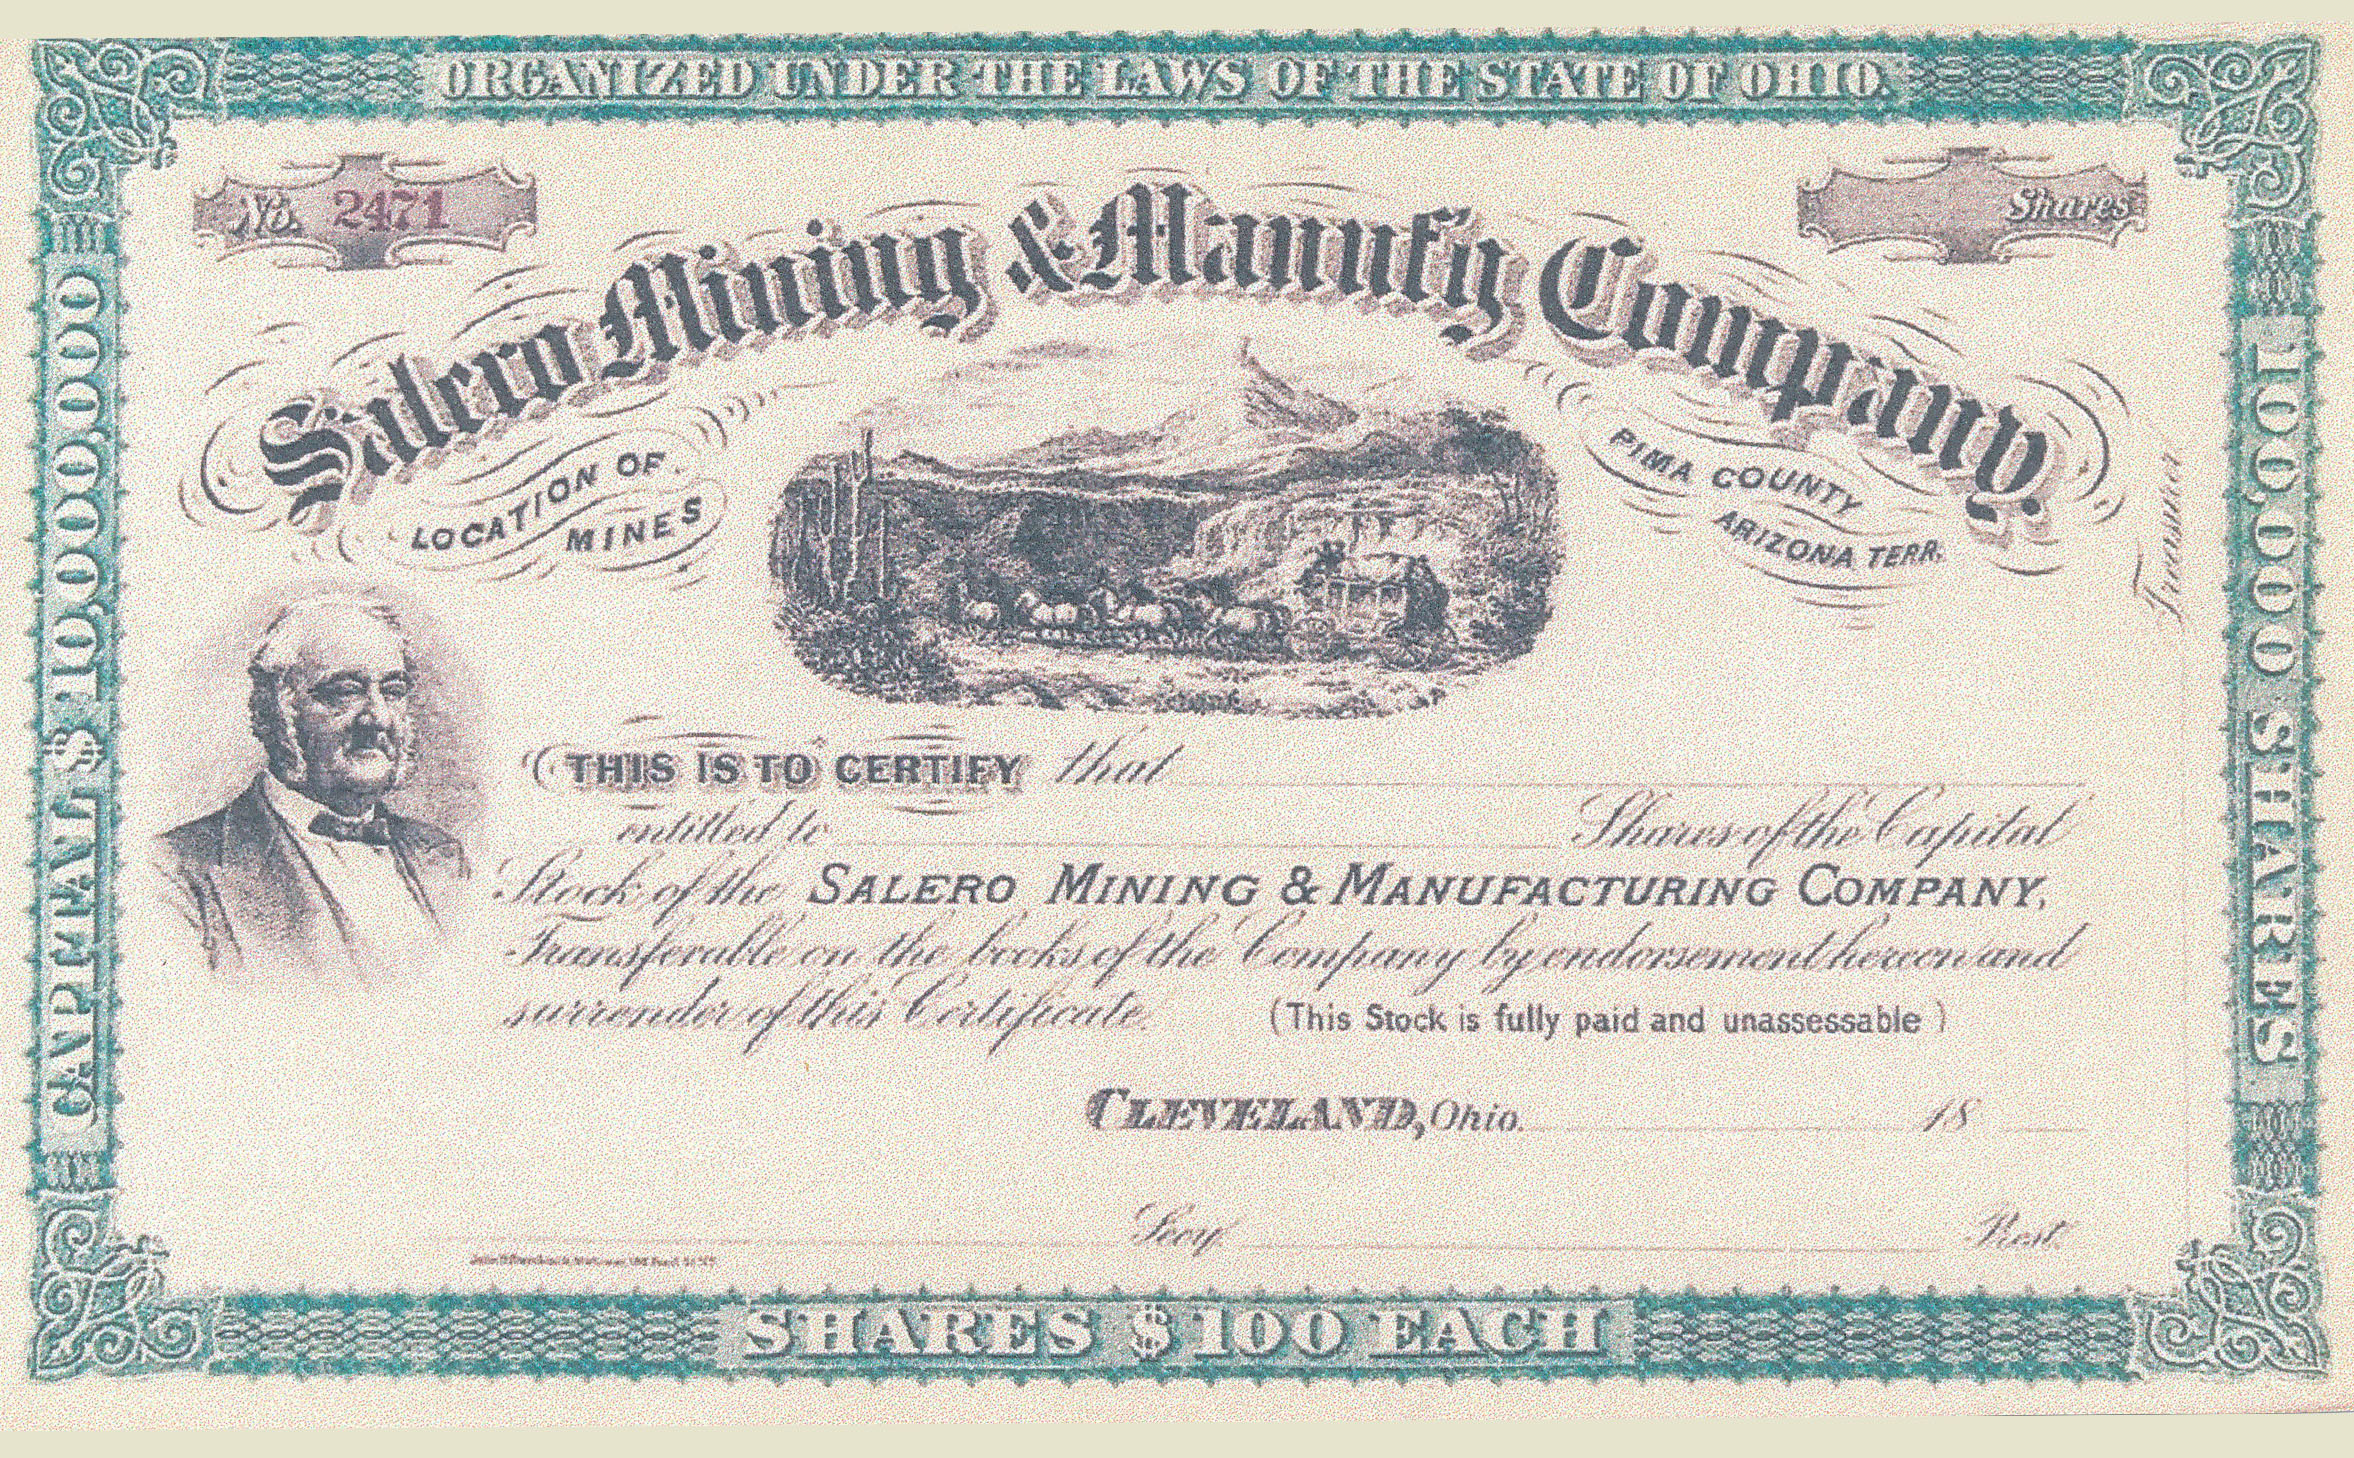 ORGANIZED UNDER THE LAWS OF THE STATE OF OHIO.
No. 2471
Shares
Salero Mining & Manufy Company.
LOCATION OF
MINES
PIMA COUNTY
ARIZONA TERR.
CAPITAL $10,000,000
100,000 SHARES
Treasurer
THIS IS TO CERTIFY that
entitled to Shares of the Capital
Stock of the SALERO MINING & MANUFACTURING COMPANY,
Transferable on the books of the Company by endorsement hereon and
surrender of this Certificate. (This Stock is fully paid and unassessable)
CLEVELAND, Ohio. 18
Secy. Prest.
SHARES $100 EACH